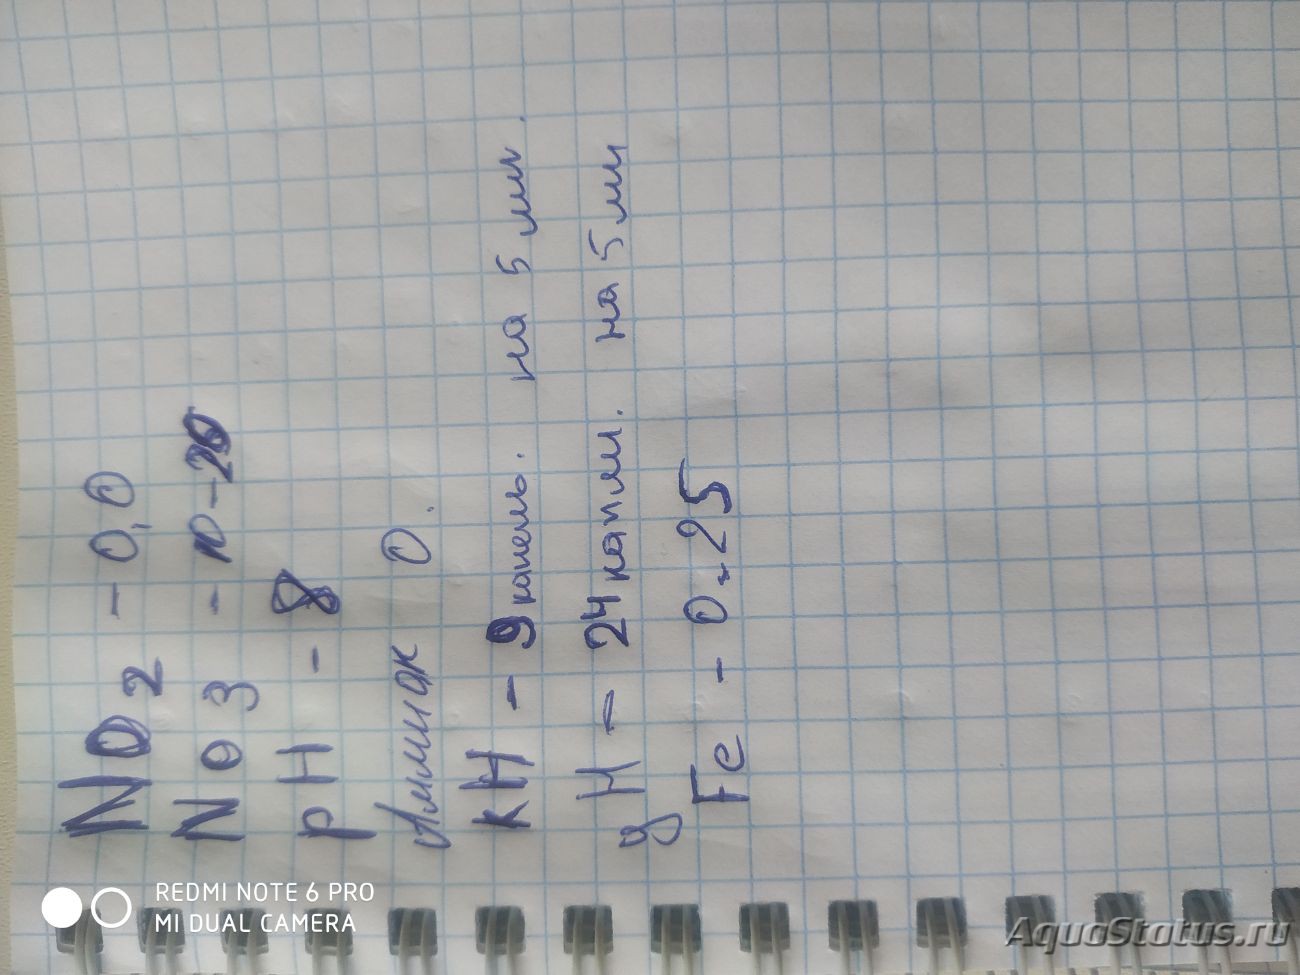 NO2 - 0,0
No3 - 10-20
pH - 8
Аммиак 0.
кН - 9 капель. на 5 мл.
gH - 24 капли. на 5 мл
Fe - 0.25
REDMI NOTE 6 PRO
MI DUAL CAMERA
AquaStatus.ru